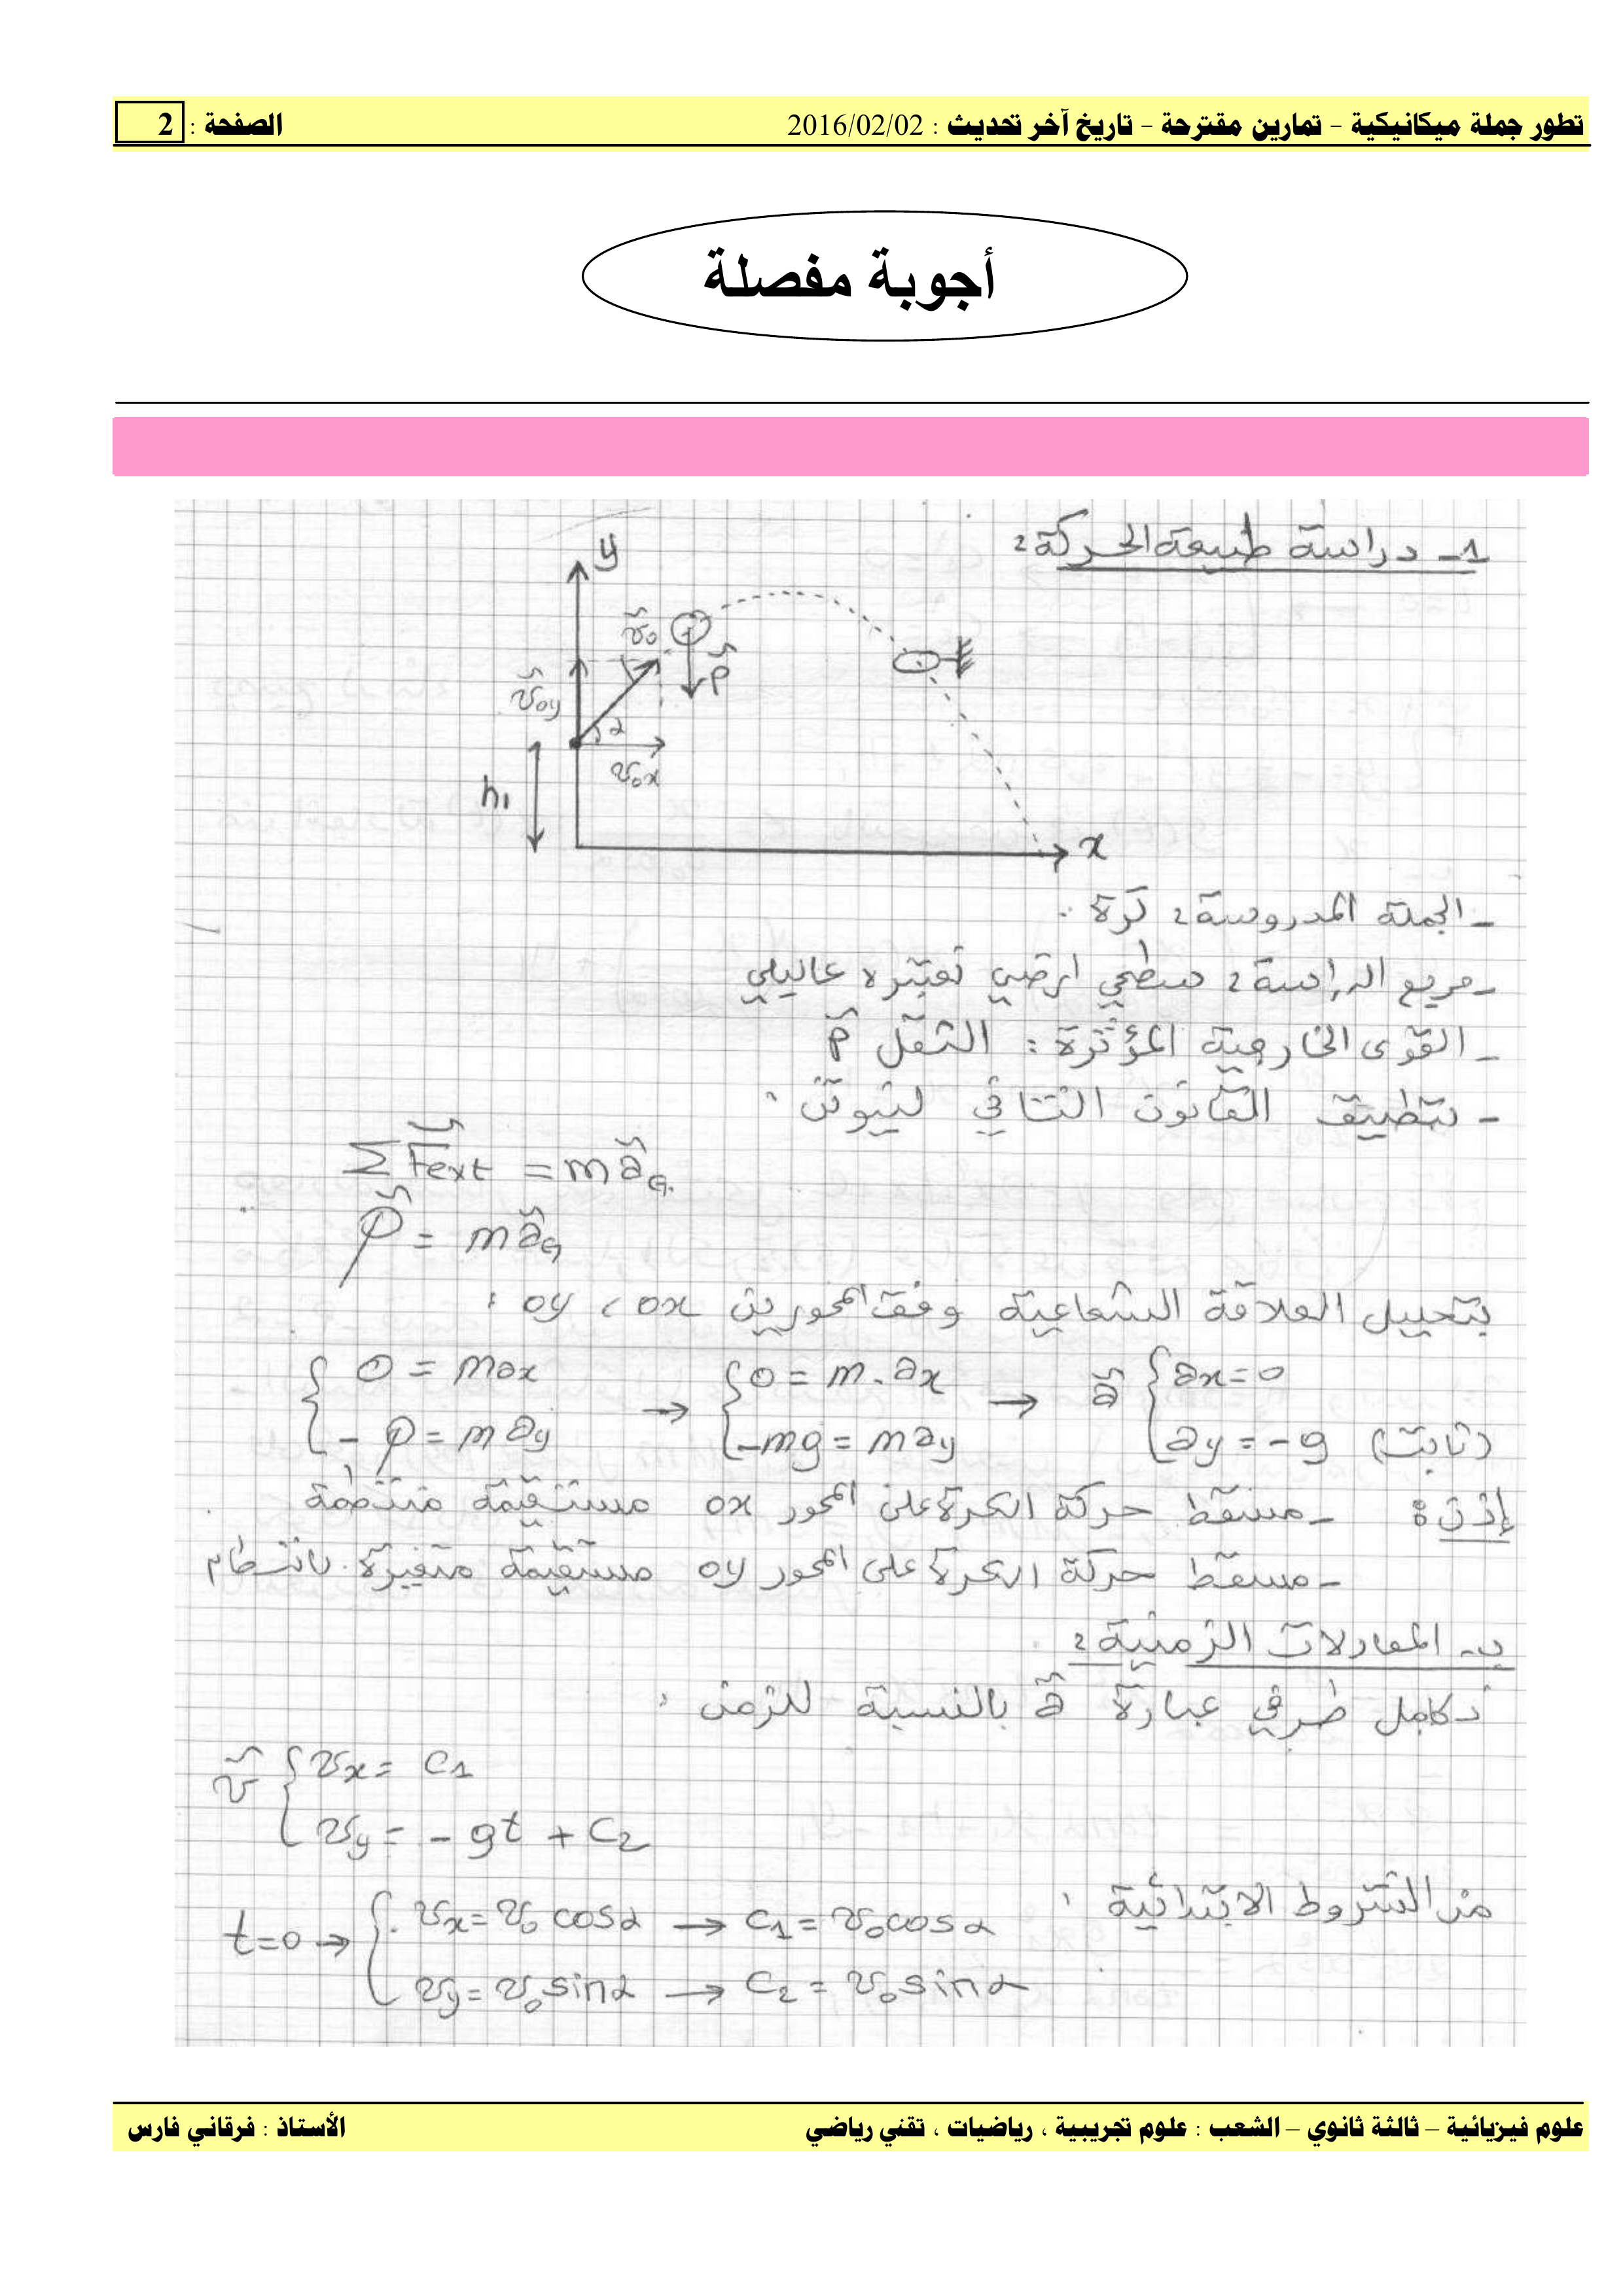 تطور جملة ميكانيكية – تمارين مقترحة – تاريخ آخر تحديث : 2016/02/02 الصفحة : 2
أجوبة مفصلة
1- دراسة طبيعة الحركة :
y
v₀
P
v₀y
α
v₀x
h₁
x
- الجملة المدروسة : كرة .
- مرجع الدراسة : سطحي أرضي نعتبره غاليلي
- القوى الخارجية المؤثرة : الثقل P
- بتطبيق القانون الثاني لنيوتن :
ΣFext = m aG
P = m aG
بتحليل العلاقة الشعاعية وفق المحورين ox ، oy :
{ 0 = max → { 0 = m . ax → a { ax = 0
{ - P = m ay { -mg = may { ay = -g (ثابت)
إذن : - مسقط حركة الكرة على المحور ox مستقيمة منتظمة
- مسقط حركة الكرة على المحور oy مستقيمة متغيرة بانتظام
ب- المعادلات الزمنية :
نكامل طرفي عبارة a بالنسبة للزمن :
v { vx = C1
{ vy = - gt + C2
من الشروط الابتدائية :
t=0 → { vx = v₀ cosα → C1 = v₀ cosα
{ vy = v₀ sinα → C2 = v₀ sinα
علوم فيزيائية – ثالثة ثانوي – الشعب : علوم تجريبية ، رياضيات ، تقني رياضي الأستاذ : فرقاني فارس